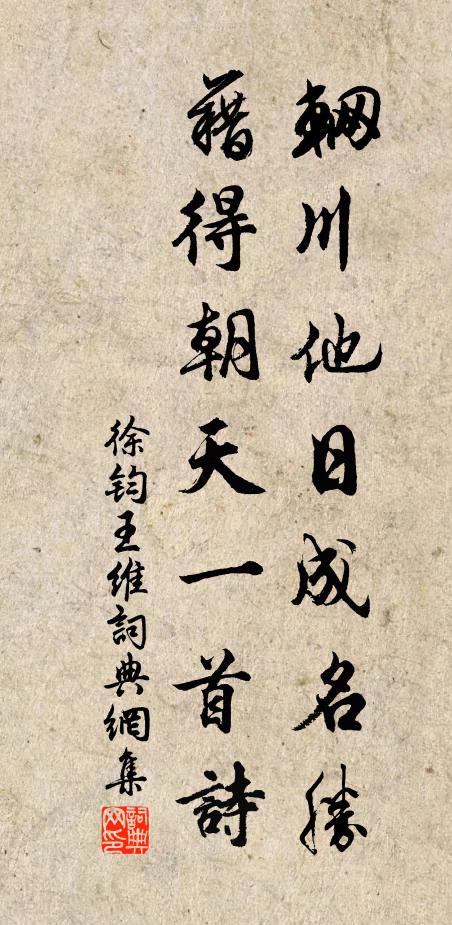 輞川他日成名勝
藉得朝天一首詩
徐鈞王維詞典網集
詞典网印